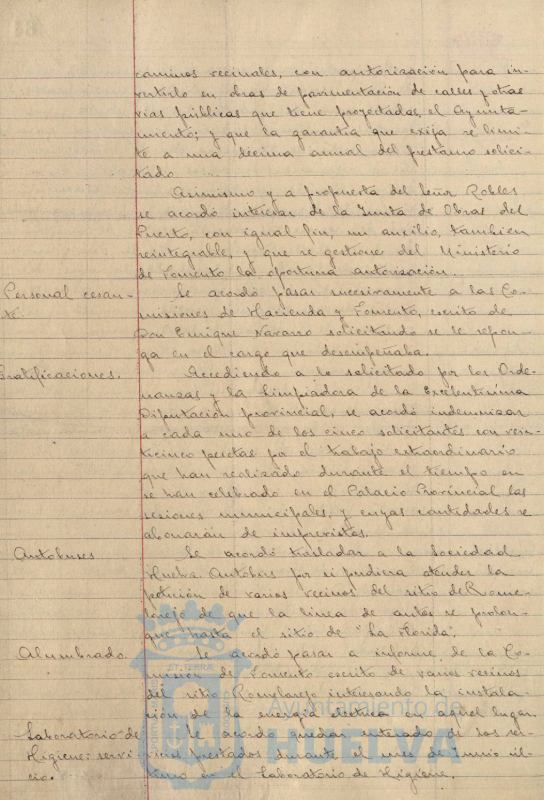 caminos vecinales, con autorización para in-
vertirlo en obras de pavimentación de calles y otras
vías públicas que tiene proyectadas, el Ayunta-
miento; y que la garantía que exija se limi-
te a una décima anual del prestamo solici-
tado.
Asimismo y a propuesta del Señor Robles
se acordó interesar de la Junta de Obras del
Puerto, con igual fin, un auxilio, tambien
reintegrable, y que se gestione del Ministerio
de Fomento la oportuna autorización.
Personal cesan-
te.
Se acordó pasar sucesivamente a las Co-
misiones de Hacienda y Fomento, escrito de
Don Enrique Navarro solicitando se le repon-
ga en el cargo que desempeñaba.
Gratificaciones.
Accediendo a lo solicitado por los Orde-
nanzas y la limpiadora de la Excelentísima
Diputación provincial, se acordó indemnizar
a cada uno de los cinco solicitantes con vein-
ticinco pesetas por el trabajo extraordinario
que han realizado durante el tiempo en
se han celebrado en el Palacio Provincial las
sesiones municipales, y cuyas cantidades se
abonarán de imprevistos.
Autobuses
Se acordó trasladar a la Sociedad
Huelva Autobus por si pudiera atender la
petición de varios vecinos del sitio de Rome-
larejo de que la linea de autos se prolon-
gue hasta el sitio de "La Florida".
Alumbrado.
Se acordó pasar a informe de la Co-
misión de Fomento escrito de varios vecinos
del sitio Romelarejo interesando la instala-
ción de la energía eléctrica en aquel lugar.
Laboratorio de
Higiene: servi-
cio.
Se acordó quedar enterado de los ser-
vicios prestados durante el mes de Junio úl-
timo en el Laboratorio de Higiene.
Ayuntamiento de
HUELVA